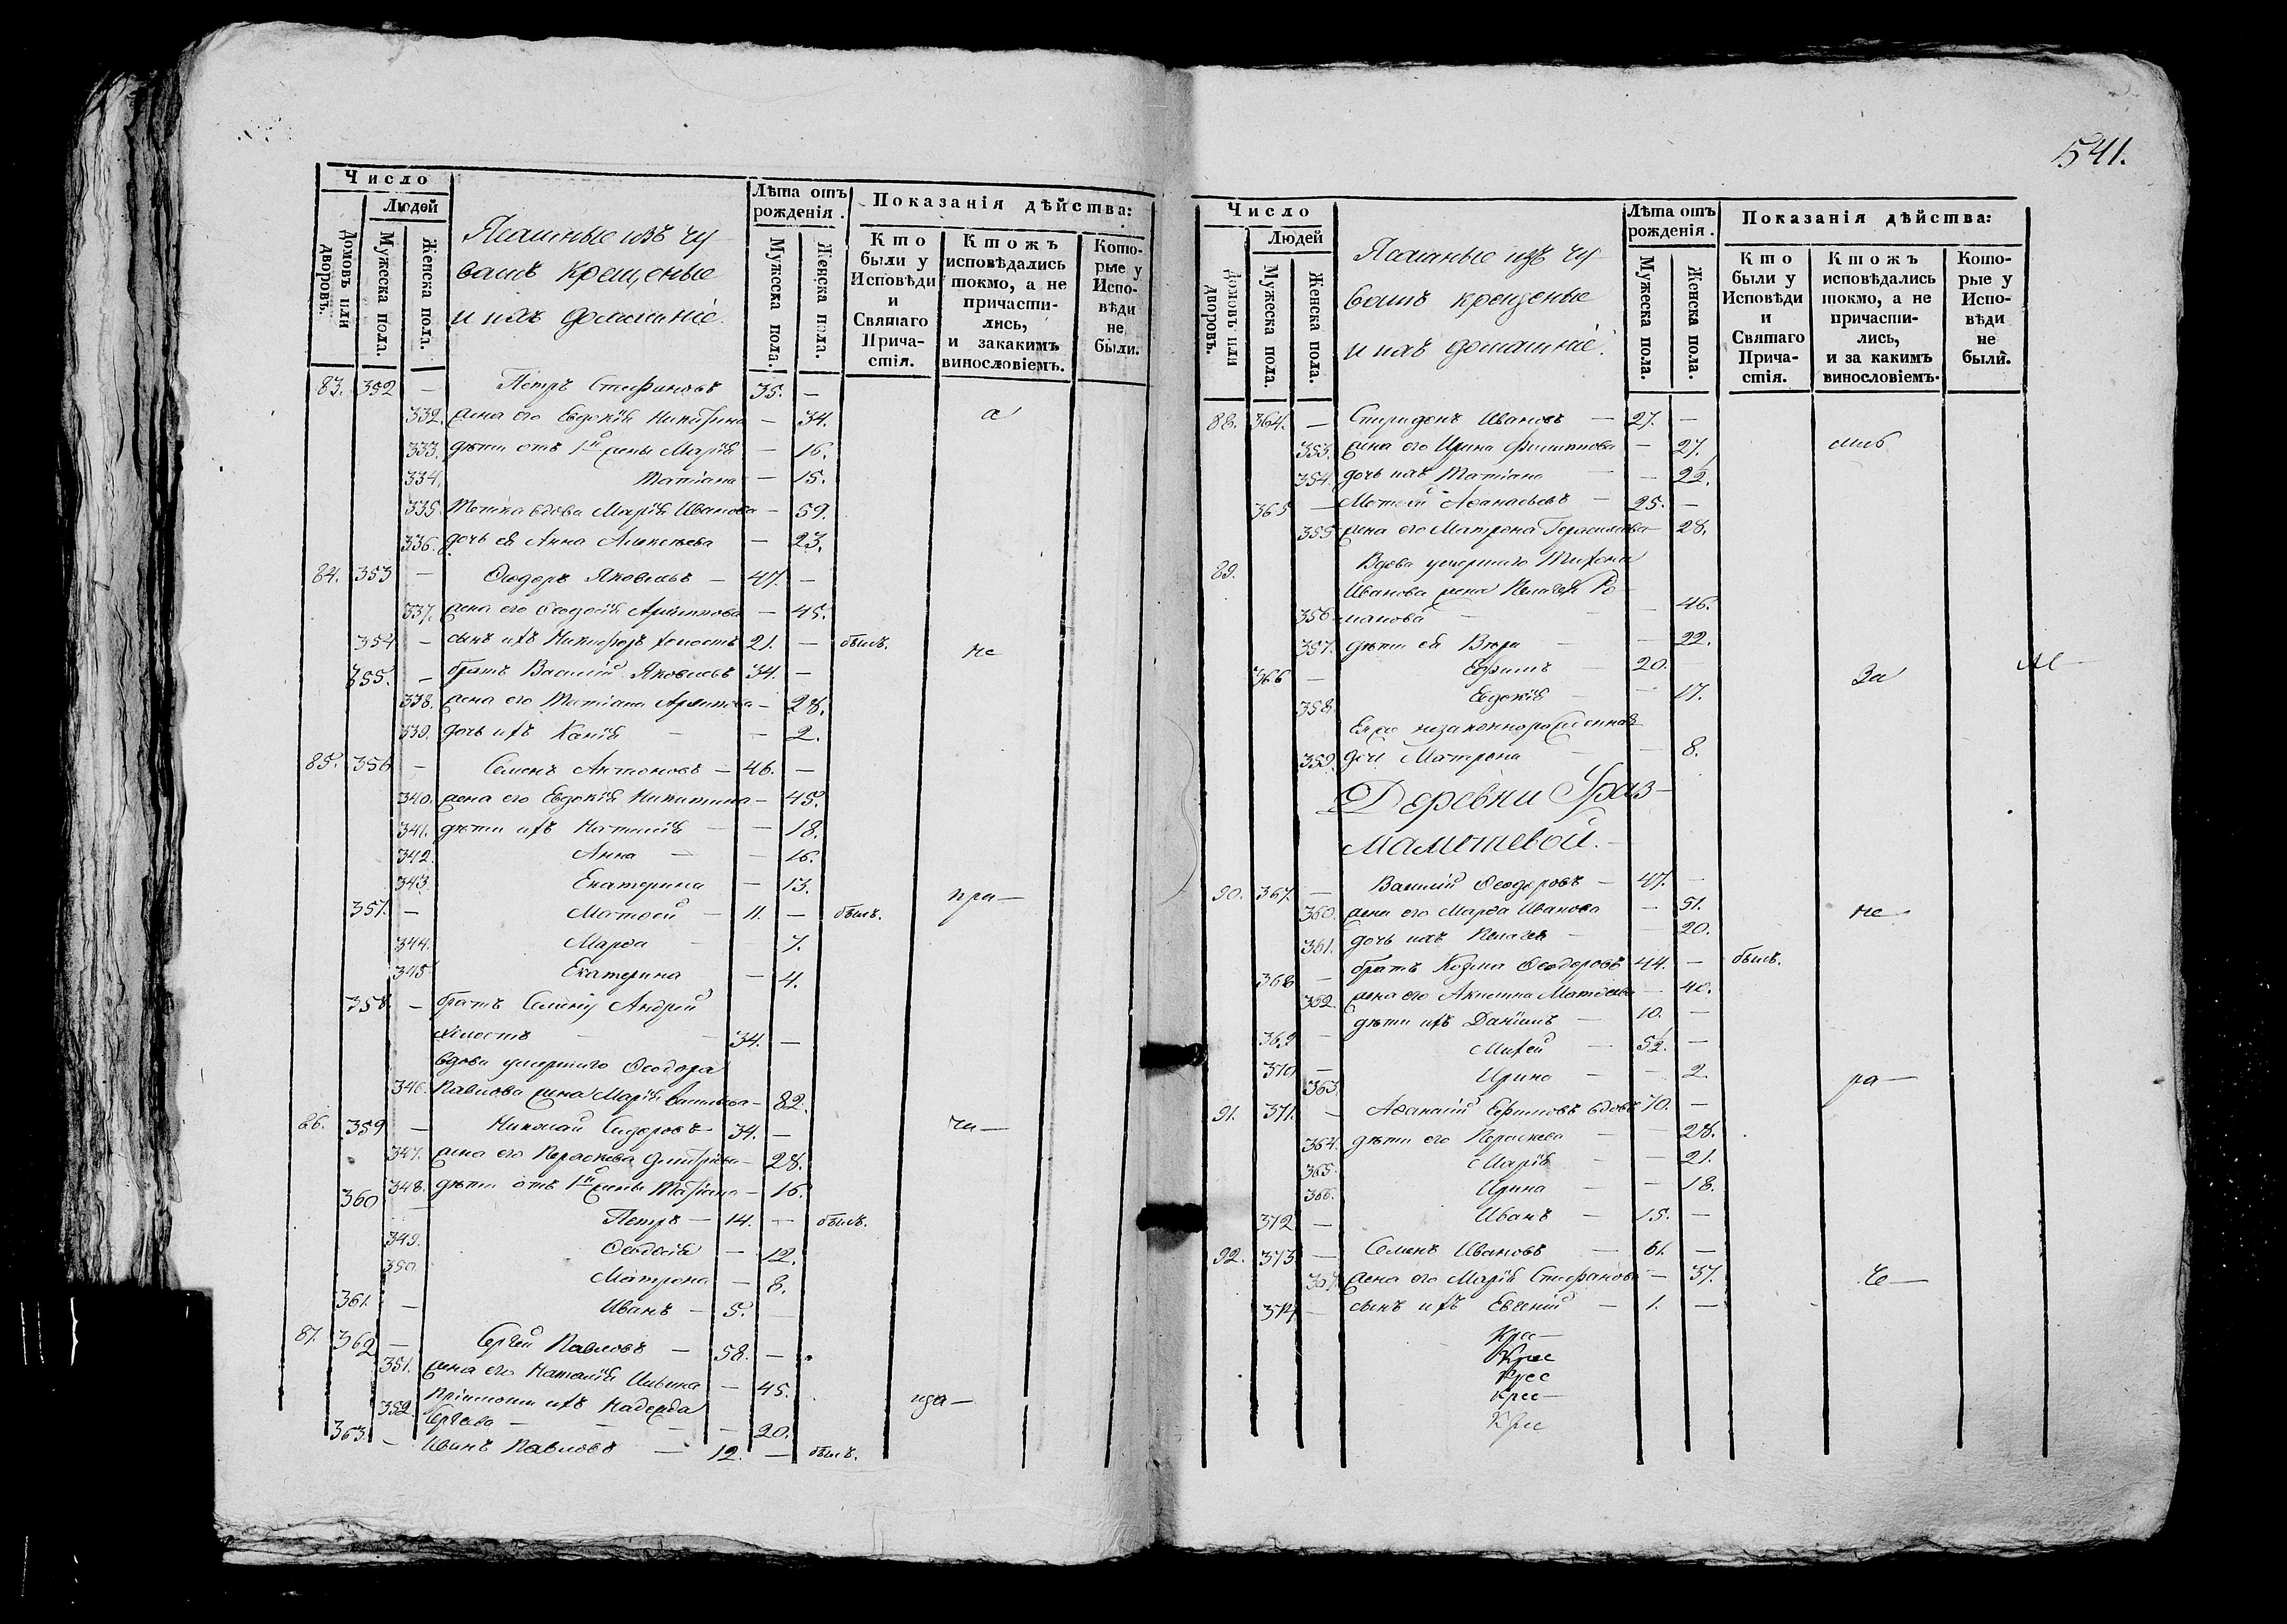 541.
Число
Людей
Домовъ или дворовъ.
Мужеска пола.
Женска пола.
Ясашные изъ чу-
вашъ крещеные
и ихъ домашніе.
Лѣта отъ рожденія.
Мужеска пола.
Женска пола.
Показанія дѣйства:
Кто были у Исповѣди и Святаго Прича-стія.
Ктожъ исповѣдались токмо, а не причасти-лись, и закакимъ винословіемъ.
Кото-рые у Испо-вѣди не были.
83. 352 — Петръ Стефановъ 35. —
332. жена его Евдокія Никитина — 34. а
333. дѣти отъ 1й жены Марія — 16.
334. Татіана — 15.
335. Тетка вдова Марія Иванова — 59.
336. дочь ея Анна Алексеева — 23.
84. 353 — Ѳеодоръ Яковлевъ — 47. —
337. жена его Ѳеодосія — 45.
354 — сынъ ихъ Никифоръ холостъ 21. — былъ. не
355. — братъ Василій Яковлевъ 34. —
338. жена его Татіана — 28.
339. дочь ихъ Ксенія — — 2.
85. 356 — Семенъ Антоновъ — 46. —
340. жена его Евдокія Никитина — 45.
341. дѣти ихъ Наталія — — 18.
342. Анна — — 16.
343. Екатерина — 13. при—
357. — Матѳей — 11. — былъ.
344. Марѳа — 7.
345 Екатерина — 4.
358. — братъ Семену Андрей
холостъ — — 34. —
вдова умершаго Ѳеодора
346. Павлова жена Марія Васильева — 82.
86. 359 — Николай Сидоровъ — 34. — ча—
347. жена его Параскева Дмитріева — 28.
348. дѣти отъ 1й жены Татіана — 16.
360 — Петръ — 14. — былъ.
349. Ѳеодосія — 12.
350. Матрона — 8.
361. — Иванъ — 5.
87. 362 — Сергей Павловъ — 58. —
351. жена его Наталія Ильина — 45.
Надежда
352 Сергѣева — — — 20.
363. — Иванъ Павловъ — 12. — былъ.
Число
Людей
Домовъ или дворовъ.
Мужеска пола.
Женска пола.
Ясашные изъ чу-
вашъ крещеные
и ихъ домашніе.
Лѣта отъ рожденія.
Мужеска пола.
Женска пола.
Показанія дѣйства:
Кто были у Исповѣди и Святаго Прича-стія.
Ктожъ исповѣдались токмо, а не причасти-лись, и за какимъ винословіемъ.
Кото-рые у Испо-вѣди не были.
88. 364. — Спиридонъ Ивановъ — 27. —
353. жена его Ирина Филиппова — 27.
354. дочь ихъ Татіана — — 2½.
365 — Матѳей Аѳанасьевъ — 25. —
355 жена его Матрона Герасимова — 28.
89. Вдова умершаго Тихона
Иванова жена Пелагея Ро-
356 манова — — 46.
357. дѣти ея Вѣра — — 22.
366 — Ефимъ — 20. За
358 Евдокія — — 17.
Ея же незаконнорожденная
359. дочь Матрона — — 8.
Деревни Ураз-
маметевой.
90. 367. — Василій Ѳеодоровъ — 47. —
360. жена его Марѳа Иванова — 51. не
361. дочь ихъ Пелагея — — 20.
368 — братъ Козма Ѳеодоровъ 44. — былъ.
362. жена его Акилина Матѳеева — 40.
369 — дѣти ихъ Даніилъ — 10. —
370 — Михей — 5½. —
363. Ирина — — 2. ра—
91. 371. — Аѳанасій Ефимовъ вдовъ 70. —
364. дѣти его Параскева — — 28.
365. Марія — — 21.
366. Ирина — — 18.
372 — Иванъ — 15. —
92. 373 — Семенъ Ивановъ — 61. —
367. жена его Марія Стефанова — 37.
374 — сынъ ихъ Евгеній — 1. —